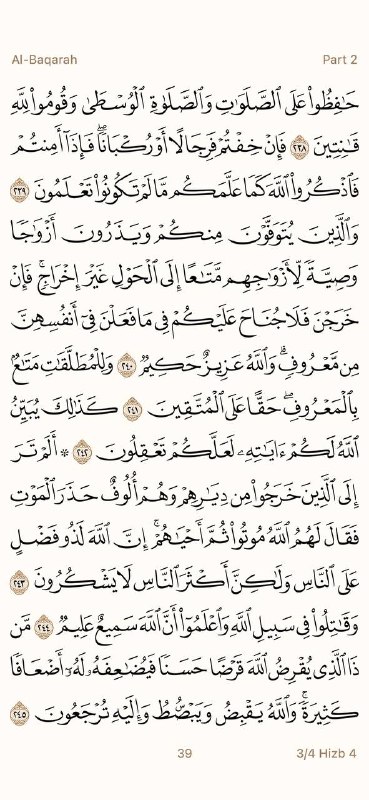 Al-Baqarah
Part 2
حَـٰفِظُوا۟ عَلَى ٱلصَّلَوَٰتِ وَٱلصَّلَوٰةِ ٱلْوُسْطَىٰ وَقُومُوا۟ لِلَّهِ
قَـٰنِتِينَ ٢٣٨ فَإِنْ خِفْتُمْ فَرِجَالًا أَوْ رُكْبَانًا ۖ فَإِذَآ أَمِنتُمْ
فَٱذْكُرُوا۟ ٱللَّهَ كَمَا عَلَّمَكُم مَّا لَمْ تَكُونُوا۟ تَعْلَمُونَ ٢٣٩
وَٱلَّذِينَ يُتَوَفَّوْنَ مِنكُمْ وَيَذَرُونَ أَزْوَٰجًا
وَصِيَّةً لِّأَزْوَٰجِهِم مَّتَـٰعًا إِلَى ٱلْحَوْلِ غَيْرَ إِخْرَاجٍ ۚ فَإِنْ
خَرَجْنَ فَلَا جُنَاحَ عَلَيْكُمْ فِى مَا فَعَلْنَ فِىٓ أَنفُسِهِنَّ
مِن مَّعْرُوفٍ ۗ وَٱللَّهُ عَزِيزٌ حَكِيمٌ ٢٤٠ وَلِلْمُطَلَّقَـٰتِ مَتَـٰعٌۢ
بِٱلْمَعْرُوفِ ۖ حَقًّا عَلَى ٱلْمُتَّقِينَ ٢٤١ كَذَٰلِكَ يُبَيِّنُ
ٱللَّهُ لَكُمْ ءَايَـٰتِهِۦ لَعَلَّكُمْ تَعْقِلُونَ ٢٤٢ ۞ أَلَمْ تَرَ
إِلَى ٱلَّذِينَ خَرَجُوا۟ مِن دِيَـٰرِهِمْ وَهُمْ أُلُوفٌ حَذَرَ ٱلْمَوْتِ
فَقَالَ لَهُمُ ٱللَّهُ مُوتُوا۟ ثُمَّ أَحْيَـٰهُمْ ۚ إِنَّ ٱللَّهَ لَذُو فَضْلٍ
عَلَى ٱلنَّاسِ وَلَـٰكِنَّ أَكْثَرَ ٱلنَّاسِ لَا يَشْكُرُونَ ٢٤٣
وَقَـٰتِلُوا۟ فِى سَبِيلِ ٱللَّهِ وَٱعْلَمُوٓا۟ أَنَّ ٱللَّهَ سَمِيعٌ عَلِيمٌ ٢٤٤ مَّن
ذَا ٱلَّذِى يُقْرِضُ ٱللَّهَ قَرْضًا حَسَنًا فَيُضَـٰعِفَهُۥ لَهُۥٓ أَضْعَافًا
كَثِيرَةً ۚ وَٱللَّهُ يَقْبِضُ وَيَبْصُۜطُ وَإِلَيْهِ تُرْجَعُونَ ٢٤٥
39
3/4 Hizb 4